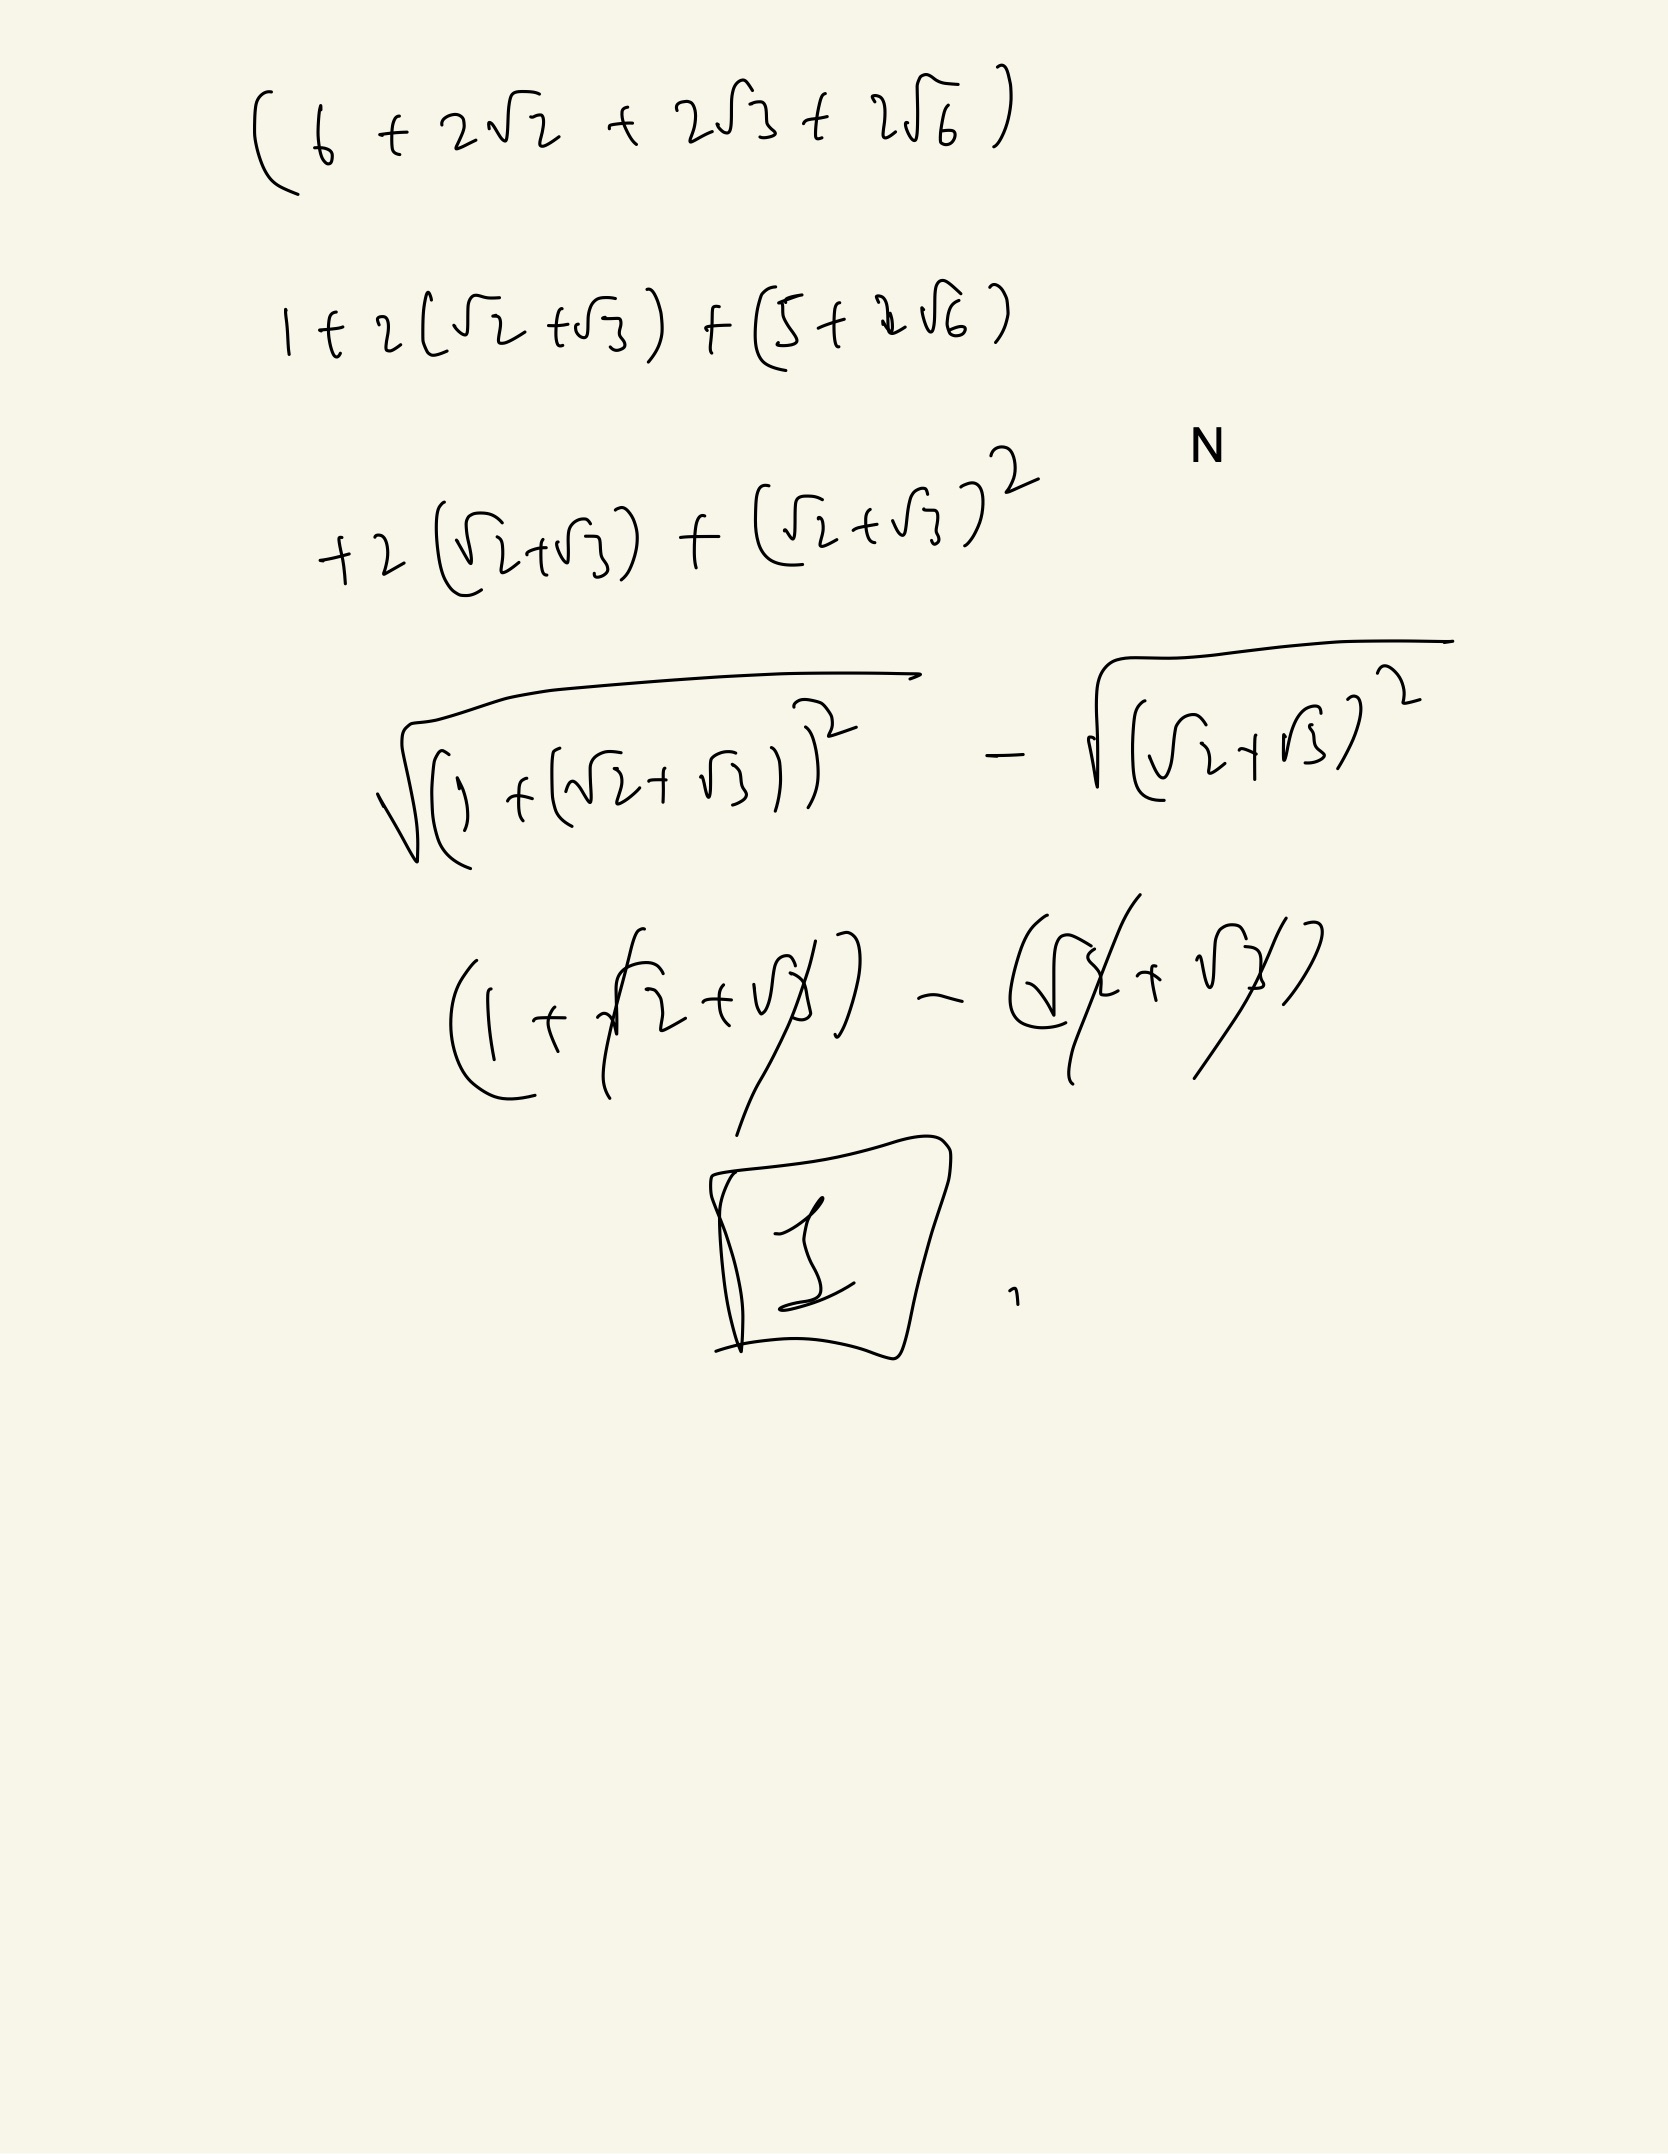 (6 + 2√2 + 2√3 + 2√6)
1 + 2(√2 + √3) + (5 + 2√6)
N
+ 2(√2 + √3) + (√2 + √3)²
√(1 + (√2 + √3))² - √(√2 + √3)²
(1 + √2 + √3) - (√2 + √3)
1